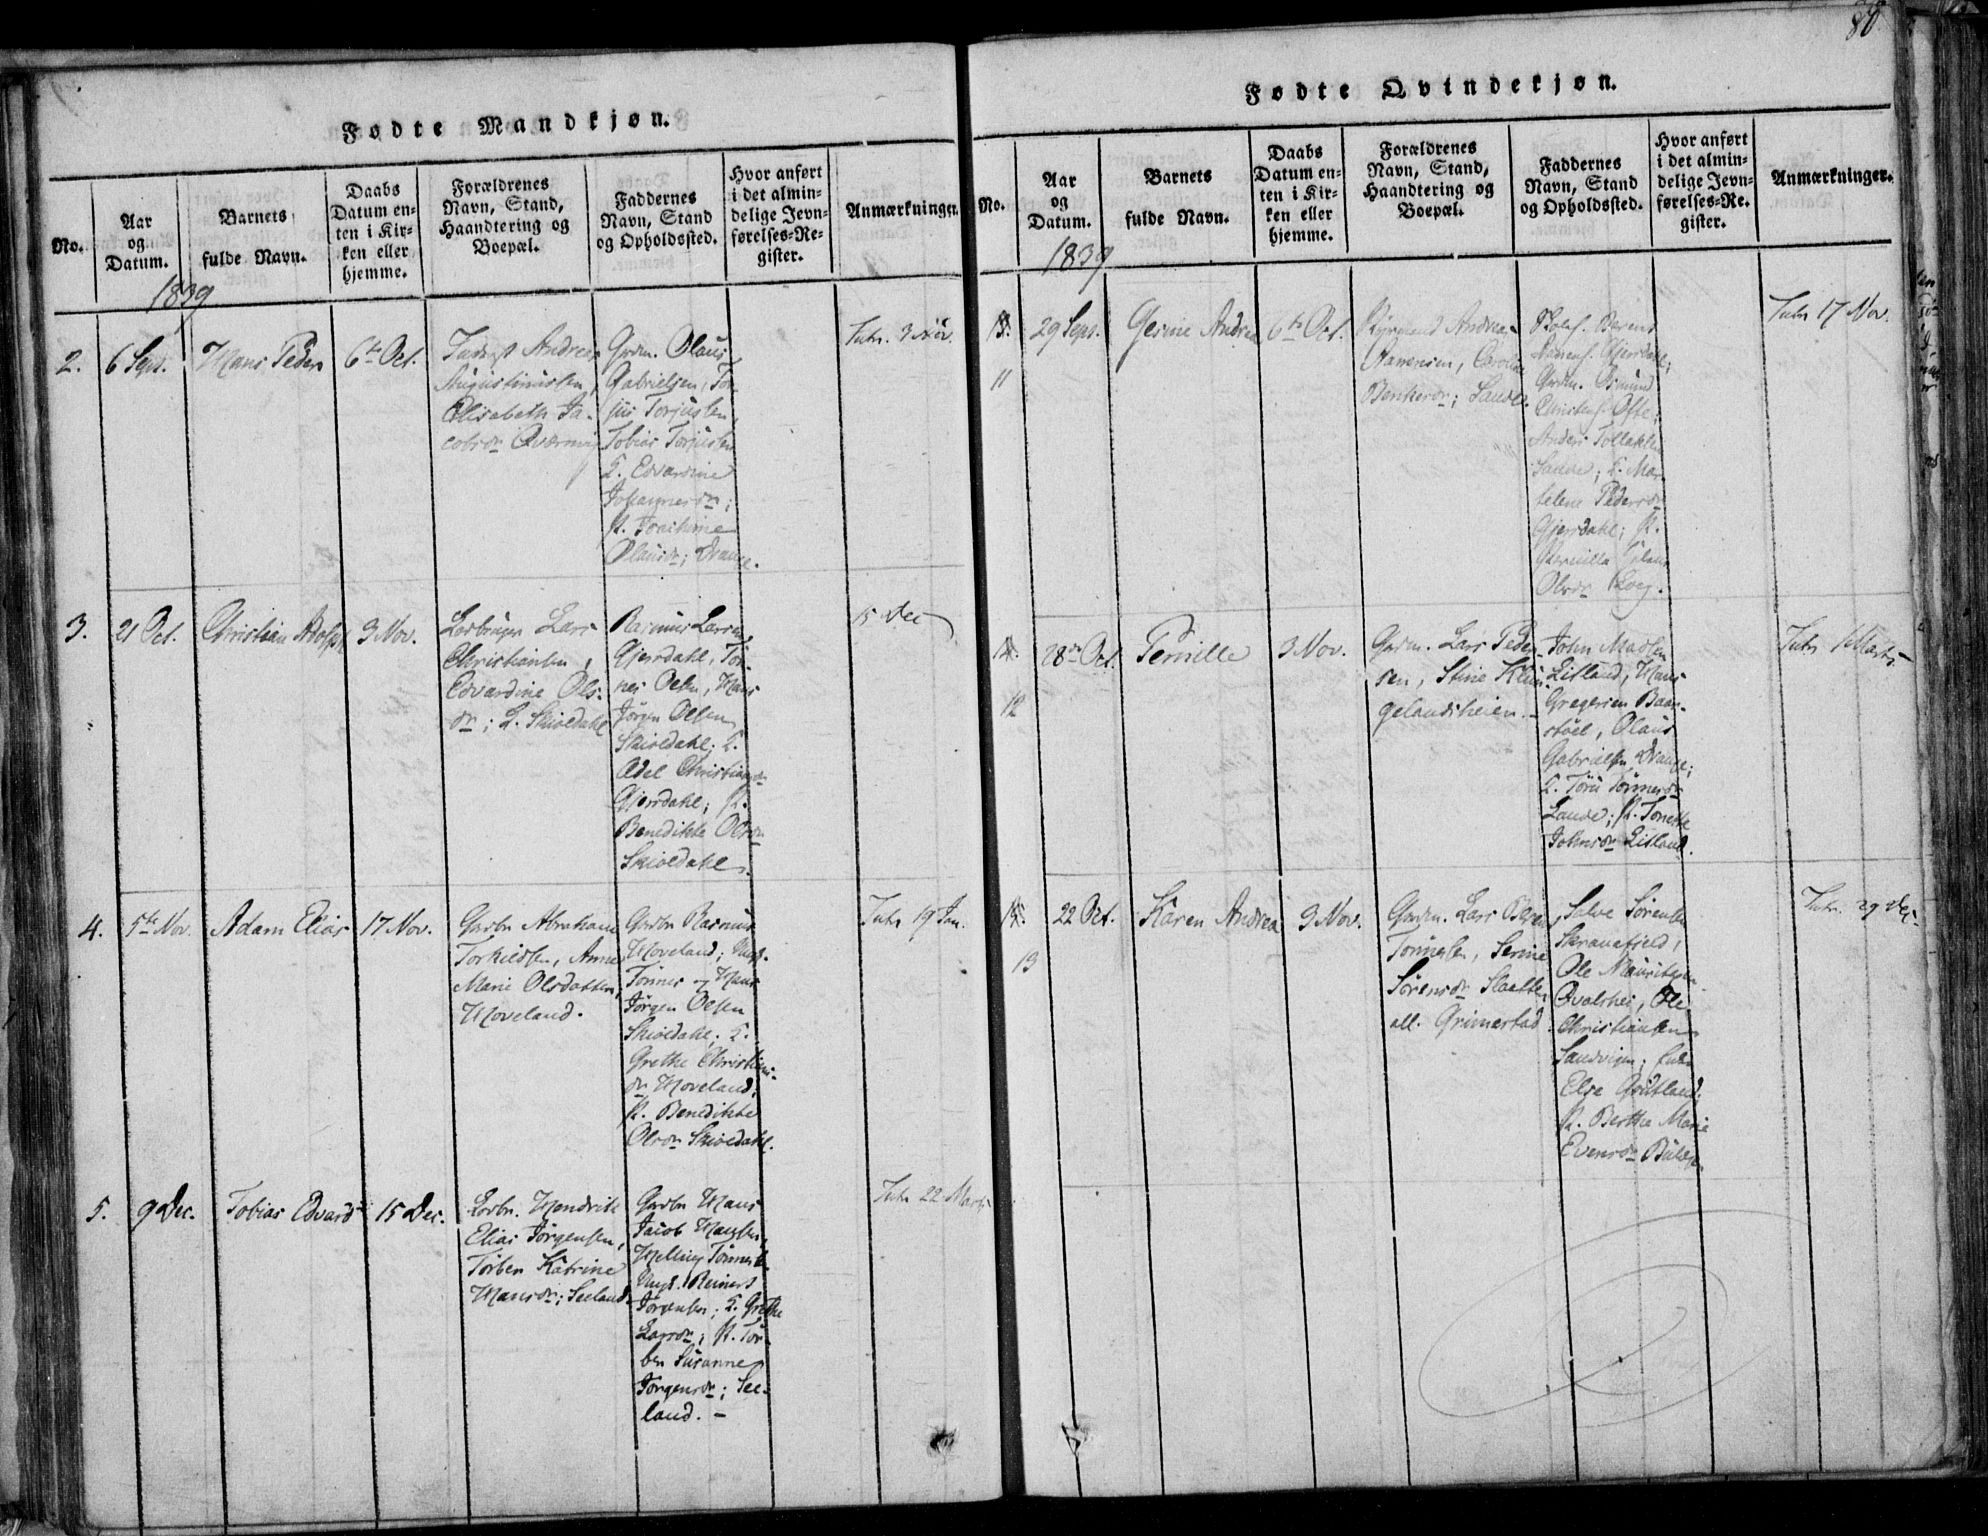 80
Fødte Mandkjøn.
No.
Aar
og
Datum.
Barnets
fulde Navn.
Daabs
Datum en-
ten i Kir-
ken eller
hjemme.
Forældrenes
Navn, Stand,
Haandtering og
Boepæl.
Faddernes
Navn, Stand
og Opholdssted.
Hvor anført
i det almin-
delige Jevn-
førelses-Re-
gister.
Anmærkninger.
1839
2.
6 Sept.
Hans Peder
6te Oct.
Andreas
Augustinussen,
Elisabeth Ja-
cobsdr
Grdm. Olaus
Gabrielsen, Tor-
jus Torjussen
Tobias Torjussen
Q. Edvardine
Johannesdr;
P. Joachime
Olausdr; Drange.
Intr. 3 Nov.
3.
21 Oct.
Christian Adolph
3 Nov.
Losbruger Lars
Christiansen,
Edvardine Ols-
dr; L. Skioldahl
Rasmus Larsen
Gjersdahl, Tøn-
nes Olsen, Hans
Jørgen Olsen
Skioldahl; Q.
Adel Christiansdr
Gjersdahl; P.
Benedikte Olsdr
Skioldahl.
15 Dec
4.
5te Nov.
Adam Elias
17 Nov.
Gaardbr Abraham
Torkildsen, Anne
Marie Olsdatter,
Hoveland.
Gaardbr Rasmus
Hoveland; Ungk.
Tønnes og Hans
Jørgen Olsen
Skioldahl; Q.
Grethe Christians-
dr Hoveland;
P. Benedikte
Olsdr Skioldahl.
Intr 19 Jan.
5.
9 Dec.
Tobias Edvard
15 Dec.
Losbr. Hendrik
Elias Jørgensen,
Torber Katrine
Hansdr; Seeland
Gaardbr Hans
Jacob Hansen,
Ungk. Reinert
Jørgensen; Q. Grethe
Larsdr; P. Tor-
ber Susanne
Jørgensdr; See-
land. -
Intr 22 Marts
Fødte Qvindekjøn.
No.
Aar
og
Datum.
Barnets
fulde Navn.
Daabs
Datum en-
ten i Kir-
ken eller
hjemme.
Forældrenes
Navn, Stand,
Haandtering og
Boepæl.
Faddernes
Navn, Stand
og Opholdssted.
Hvor anført
i det almin-
delige Jevn-
førelses-Re-
gister.
Anmærkninger.
1839
11
29 Sept.
Gerine Andrea
6te Oct.
Andreas
Aanensen, Caroline
Berntsdr; Sande.
Berent
Aanens. Gjersdahl;
Gaardm. Osmund
Christens.
Anders Tollaksen
Sande; Q. Mar-
helene Pedersdr
Gjersdahl; P.
Pernille
Olsdr
Intr 17 Nov.
12
28de Oct.
Pernille
3 Nov.
Gaardm. Lars Peder-
sen, Stine Klun-
gelandsheien. -
John Madsen
Lisland, Hans
Gregersen Baar-
støel, Olaus
Gabrielsen Drange;
Q. Tønnesdr
Lande; P. Tonette
Johnsdr Lisland.
Intr 1 Marts
13
22 Oct.
Karen Andrea
3 Nov.
Gaardm. Lars
Tønnesen, Serine
Sørensdr Slaatte,
all. Grimestad
Salve Sørensen
Skranefjeld,
Ole Mauritsen
Qvalshei, Ole
Christiansen
Sandvigen; Enke
Else Goutland.
P. Berthe Marie
Evensdr
Intr. 29 Dec.